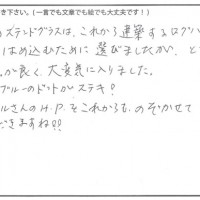 き下さい。(一言でも文章でも絵でも大丈夫です!)
のステンドグラスは、これから建築するログハ
はめ込むために選びましたが、と
が良く、大変気に入りました。
ブルーのドットがステキ!
ルさんのH.P.をこれからものぞかせて
だきますね!!